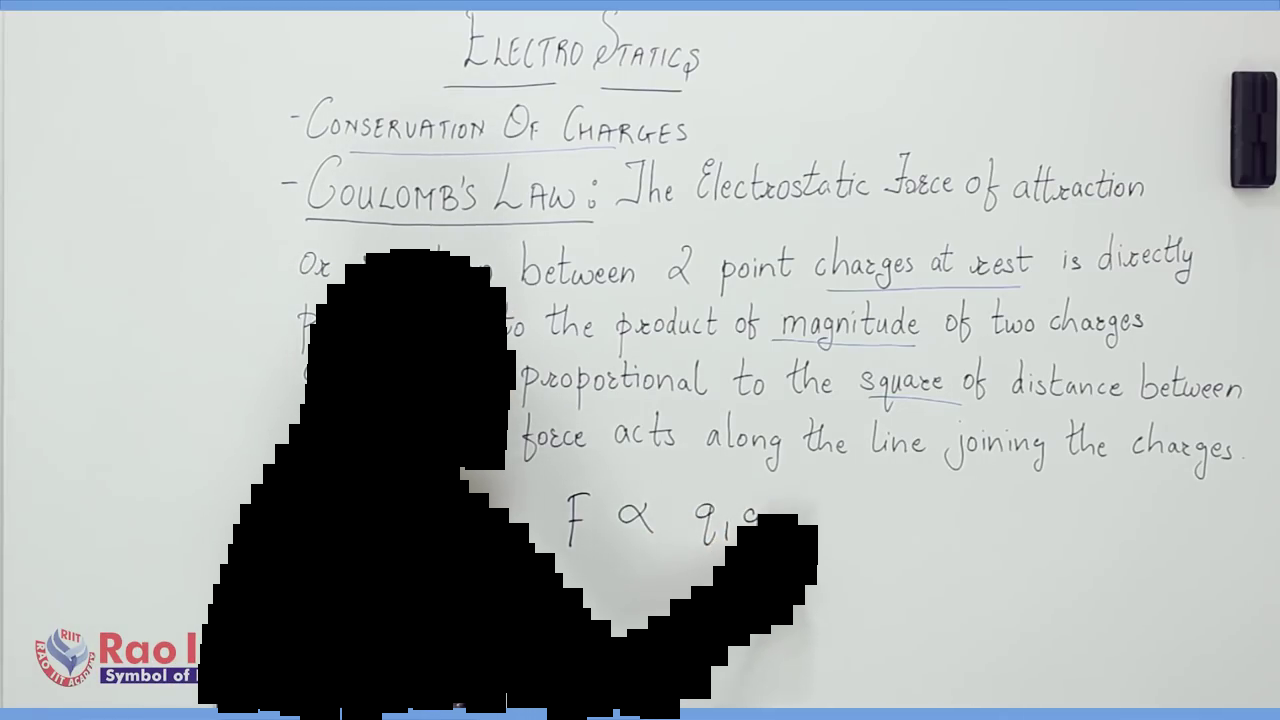 ELECTROSTATICS
- CONSERVATION OF CHARGES
- COULOMB'S LAW: The Electrostatic Force of attraction
Or between 2 point charges at rest is directly
to the product of magnitude of two charges
proportional to the square of distance between
force acts along the line joining the charges.
F ∝ q₁
RIIT
RAO IIT ACADEMY
Rao I
Symbol of